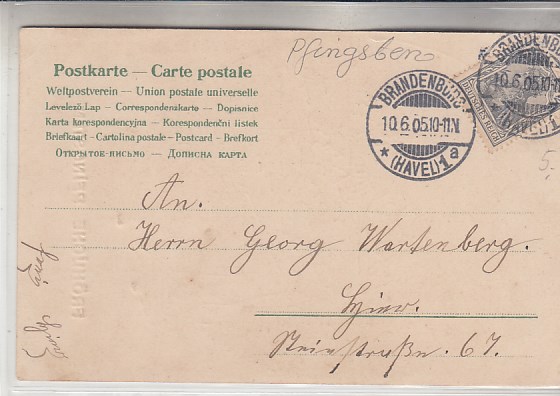 Pfingsten
Postkarte — Carte postale
Weltpostverein — Union postale universelle
Levelező Lap — Correspondenzkarte — Dopisnice
Karta korespondencyjna — Korespondenční listek
Briefkaart — Cartolina postale — Postcard — Brefkort
ОТКРЫТОЕ-ПИСЬМО — ДОПИСНА КАРТА
BRANDENBURG
10.6.05.10-11.V.
* (HAVEL) 1 a
BRANDENBURG
10.6.05.10-11.V.
(HAVEL) 1
DEUTSCHES REICH
5.-
An.
Herrn Georg Wartenberg.
Hier.
Steinstraße. 67.
FRÖHLICHE PFINGSTEN